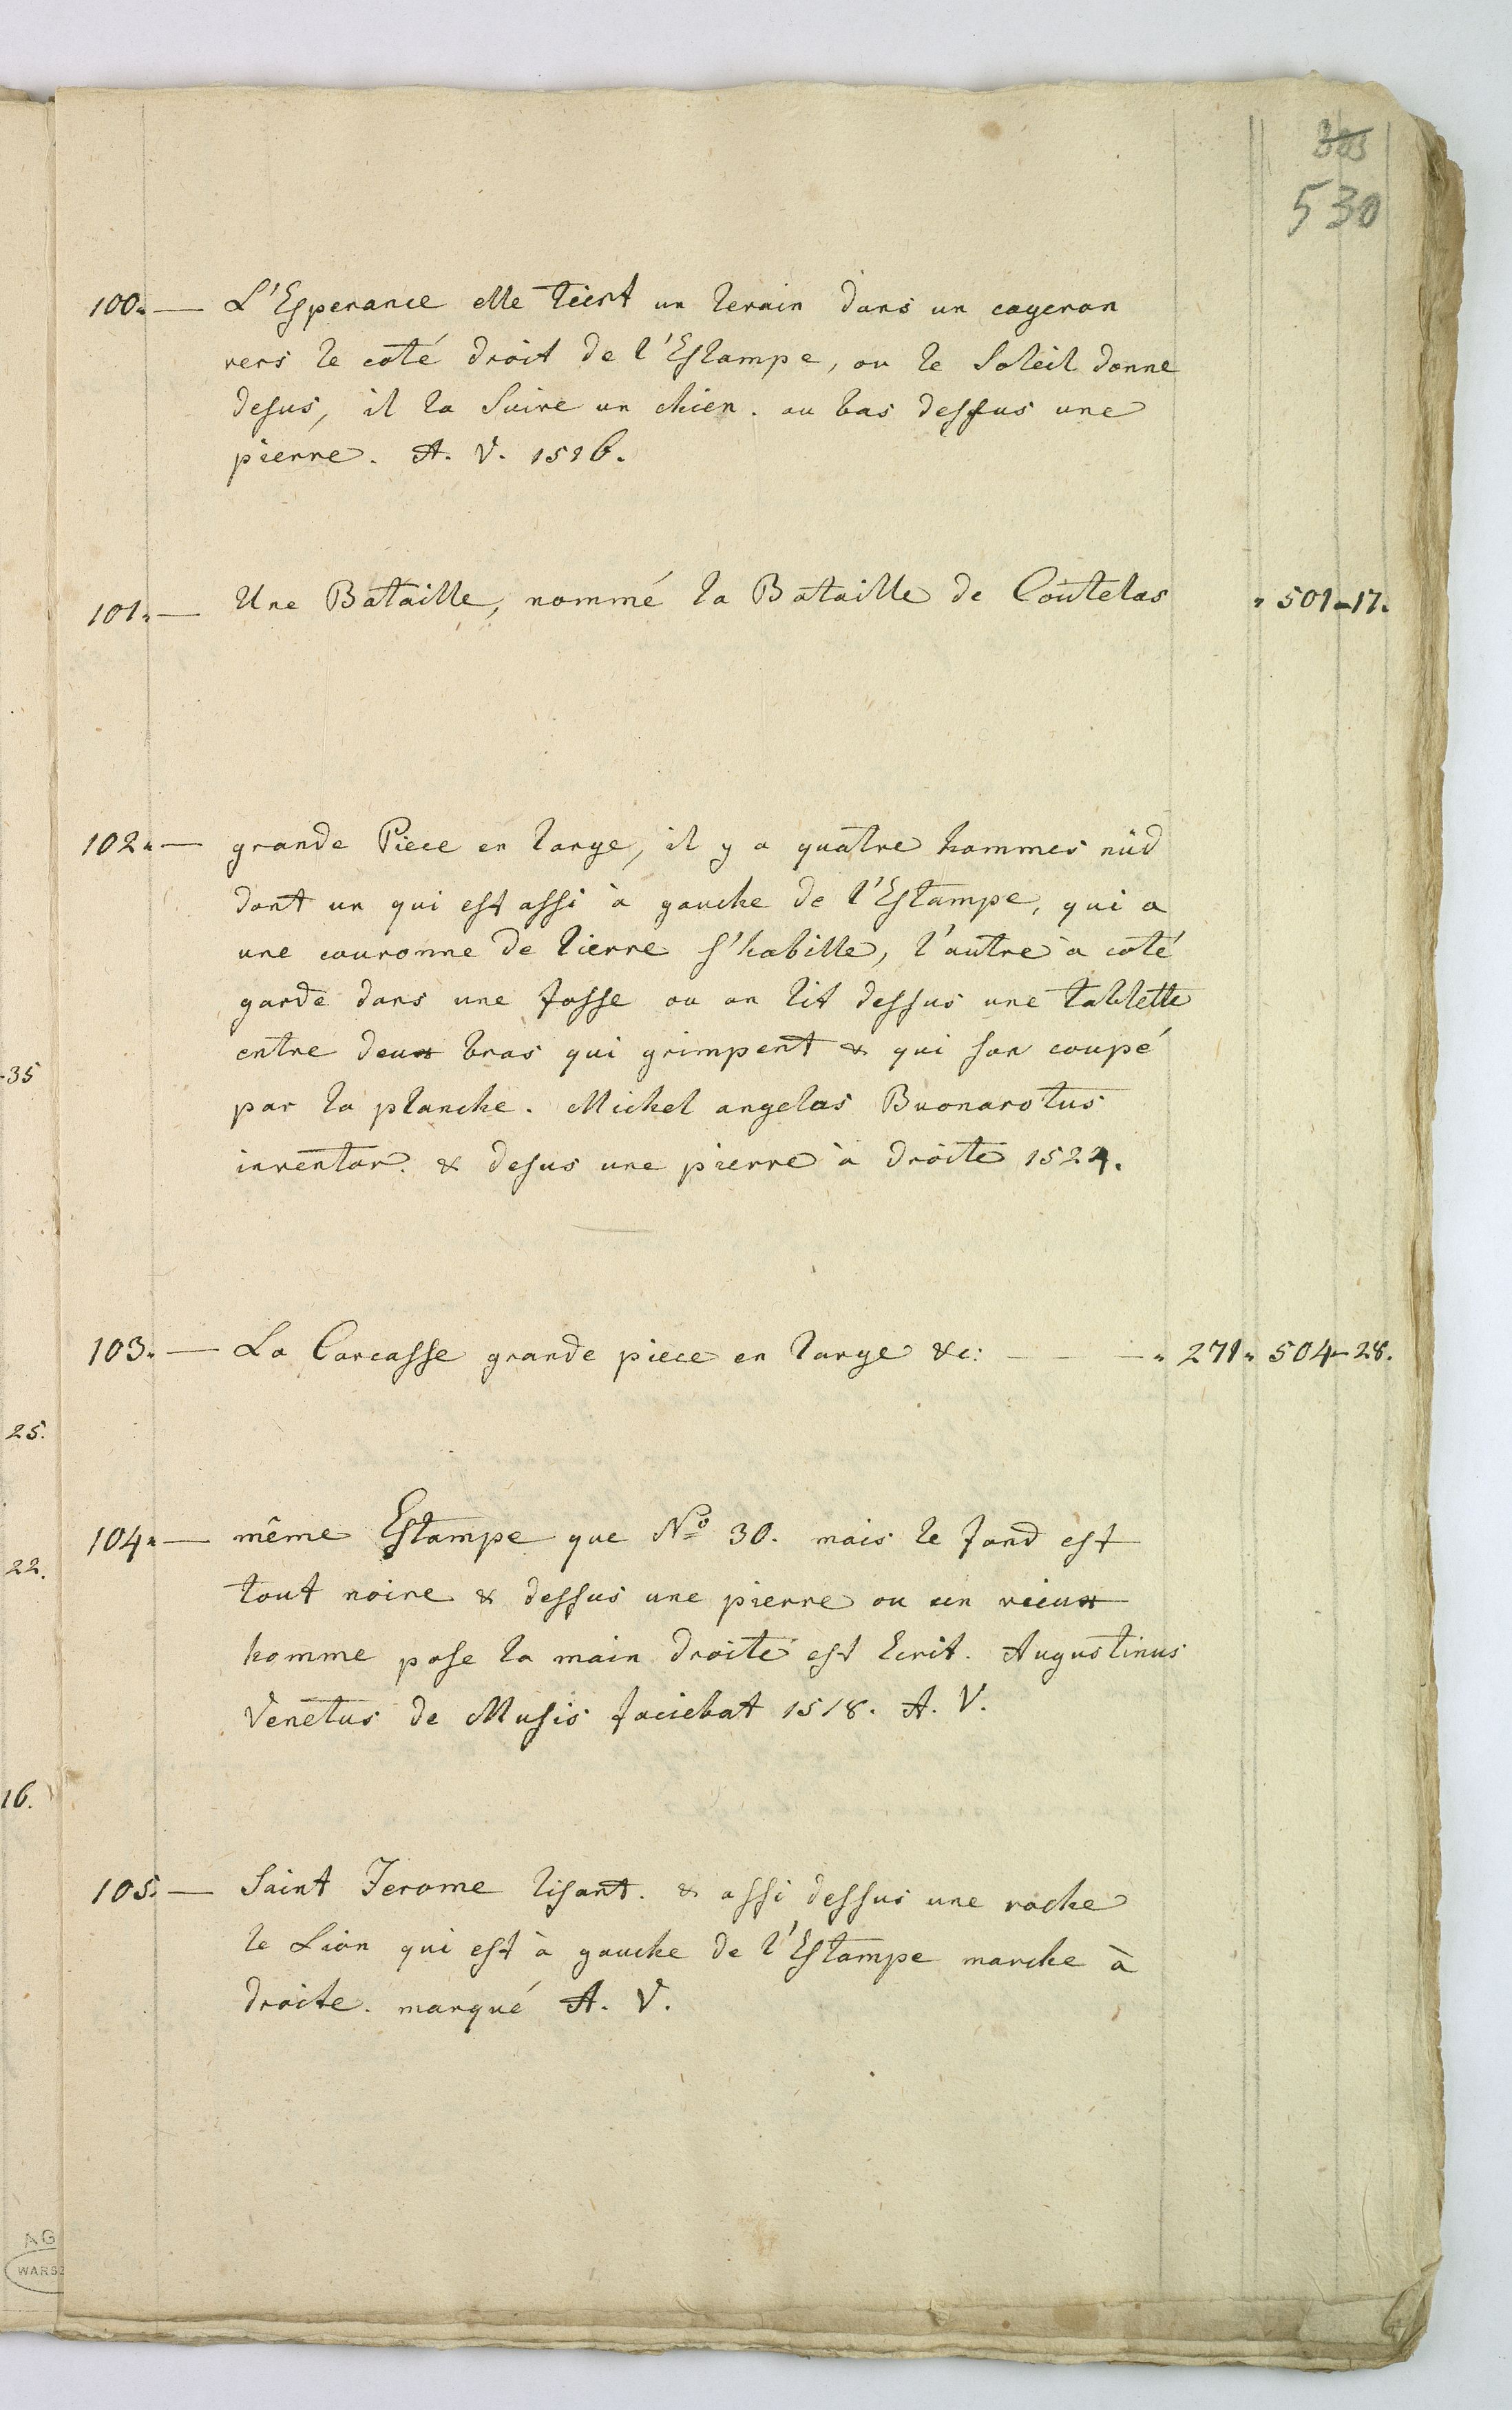 303
530
100. — L'Esperance elle tient un serain dans un cageron
vers le coté droit de l'Estampe, ou le Soleil donne
desus, il la Suive un chien. au bas dessus une
pierre. A. V. 1516.
101. — Une Bataille, nommé la Bataille de Coutelas " 501-17.
102. — grande Piece en large, il y a quatre hommes nüd
dont un qui est assi à gauche de l'Estampe, qui a
une couronne de lierre s'habille, l'autre à coté
garde dans une fosse ou on lit dessus une tablette
entre deux bras qui grimpent & qui son coupé
par la planche. Michel angelas Buonarotus
inventor. & desus une pierre à droite 1524.
103. — La Carcasse grande piece en large &c: — — — " 271 " 504-28.
104. — même Estampe que No 30. mais le fond est
tout noire & dessus une pierre ou un vieux
homme pose la main droite est Ecrit. Augustinus
Venetus de Musis faciebat 1518. A. V.
105. — Saint Jerome lisant. & assi dessus une roche
le Lion qui est à gauche de l'Estampe marche à
droite. marqué A. V.
-35
25.
22.
16.
AG
WARSZ